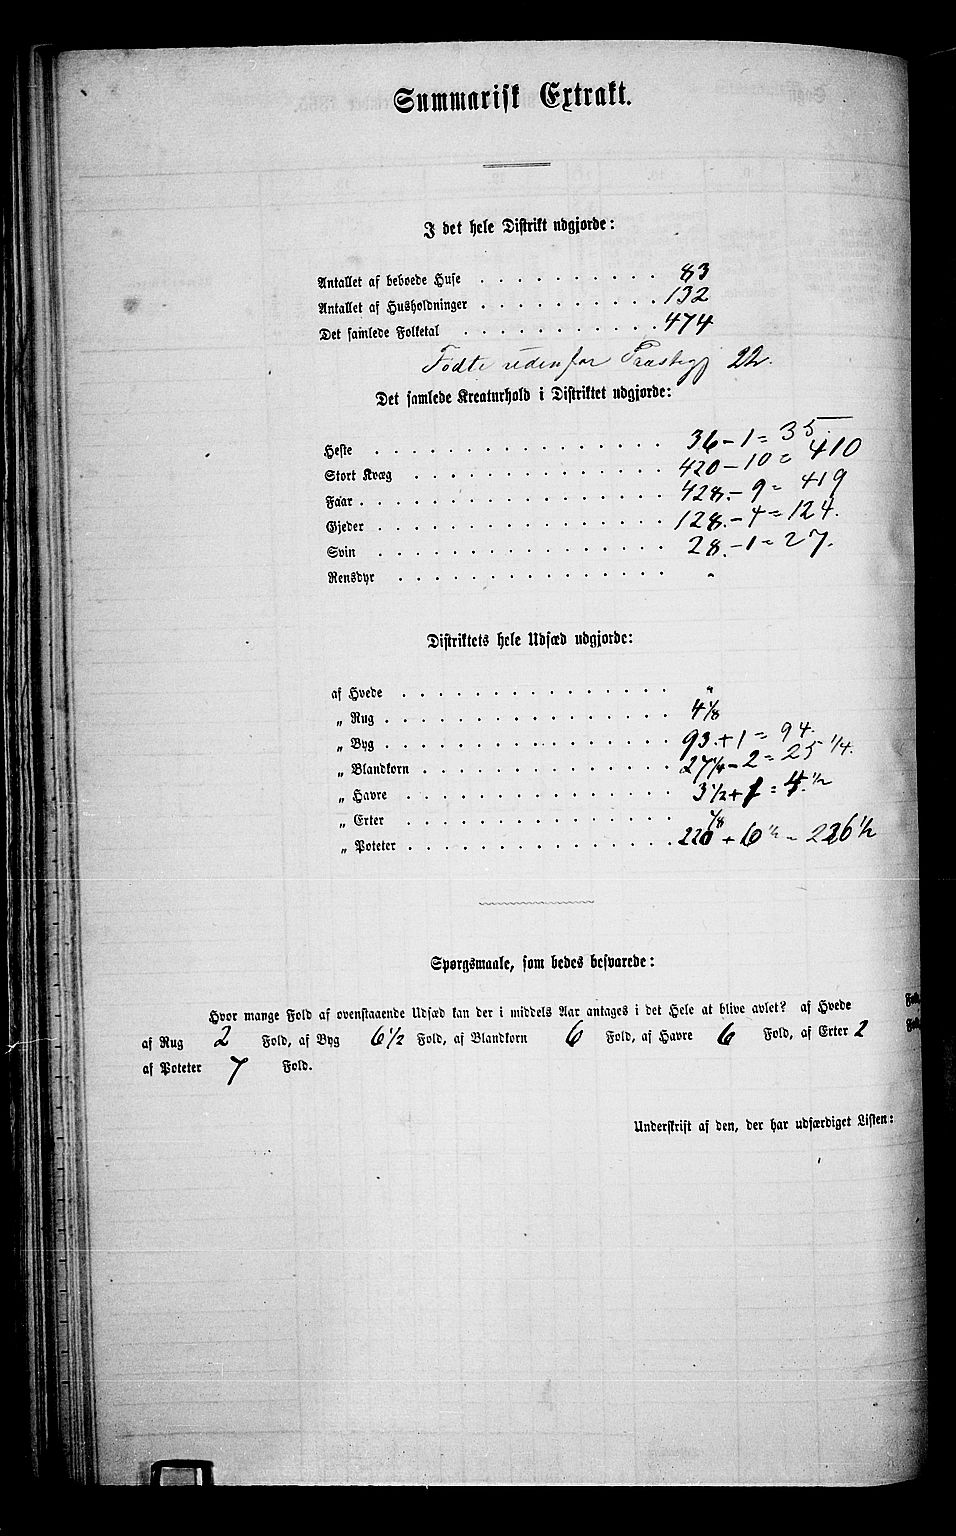 Summarisk Extrakt.
I det hele Distrikt udgjorde:
Antallet af beboede Huse . . . . . . . . . . 83
Antallet af Husholdninger . . . . . . . . . . 132
Det samlede Folketal . . . . . . . . . . . 474
Fødte udenfor 22.
Det samlede Kreaturhold i Distriktet udgjorde:
Heste . . . . . . . . . . . . . . . 36 - 1 = 35.
Stort Kvæg . . . . . . . . . . . . . 420 - 10 = 410
Faar . . . . . . . . . . . . . . . . 428. - 9 = 419
Gjeder . . . . . . . . . . . . . . . 128. - 4 = 124.
Svin . . . . . . . . . . . . . . . 28. - 1 = 27.
Rensdyr . . . . . . . . . . . . . . "
Distriktets hele Udsæd udgjorde:
af Hvede . . . . . . . . . . . . . . "
„ Rug . . . . . . . . . . . . . . . . 4 1/8
„ Byg . . . . . . . . . . . . . . . . 93. + 1 = 94.
„ Blandkorn . . . . . . . . . . . . . 27 1/4 - 2 = 25 1/4.
„ Havre . . . . . . . . . . . . . . 3 1/2 + 1 = 4. 1/2
„ Erter . . . . . . . . . . . . . . 1/8
„ Poteter . . . . . . . . . . . . . . 220 + 6 1/2 = 226 1/2
Spørgsmaale, som bedes besvarede:
Hvor mange Fold af ovenstaaende Udsæd kan der i middels Aar antages i det Hele at blive avlet? af Hvede Fold,
af Rug 2 Fold, af Byg 6 1/2 Fold, af Blandkorn 6 Fold, af Havre 6 Fold, af Erter 2 Fold,
af Poteter 7 Fold.
Underskrift af den, der har udfærdiget Listen: